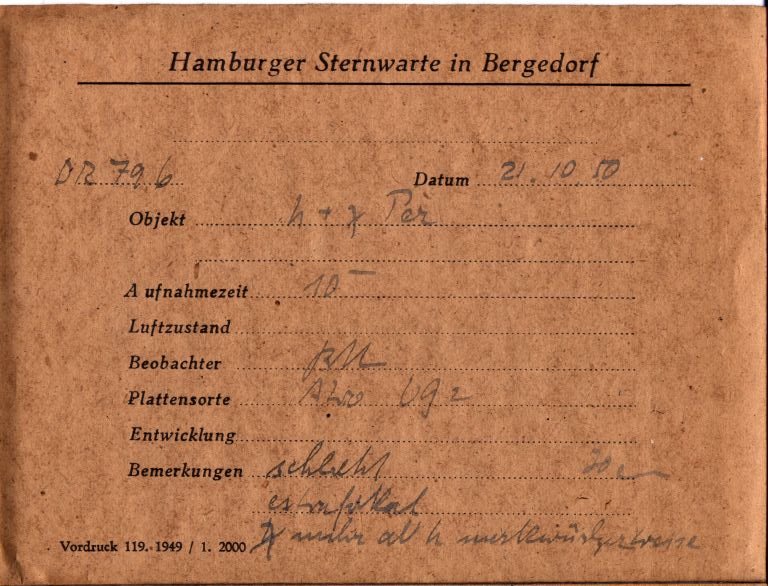 Hamburger Sternwarte in Bergedorf
DR 796
Datum 21.10.50
Objekt h + χ Per
Aufnahmezeit 10
Luftzustand
Beobachter
Plattensorte UG2
Entwicklung
Bemerkungen schlecht
extrafokal
Vordruck 119. 1949 / 1. 2000 χ mehr als h merkwürdigerweise